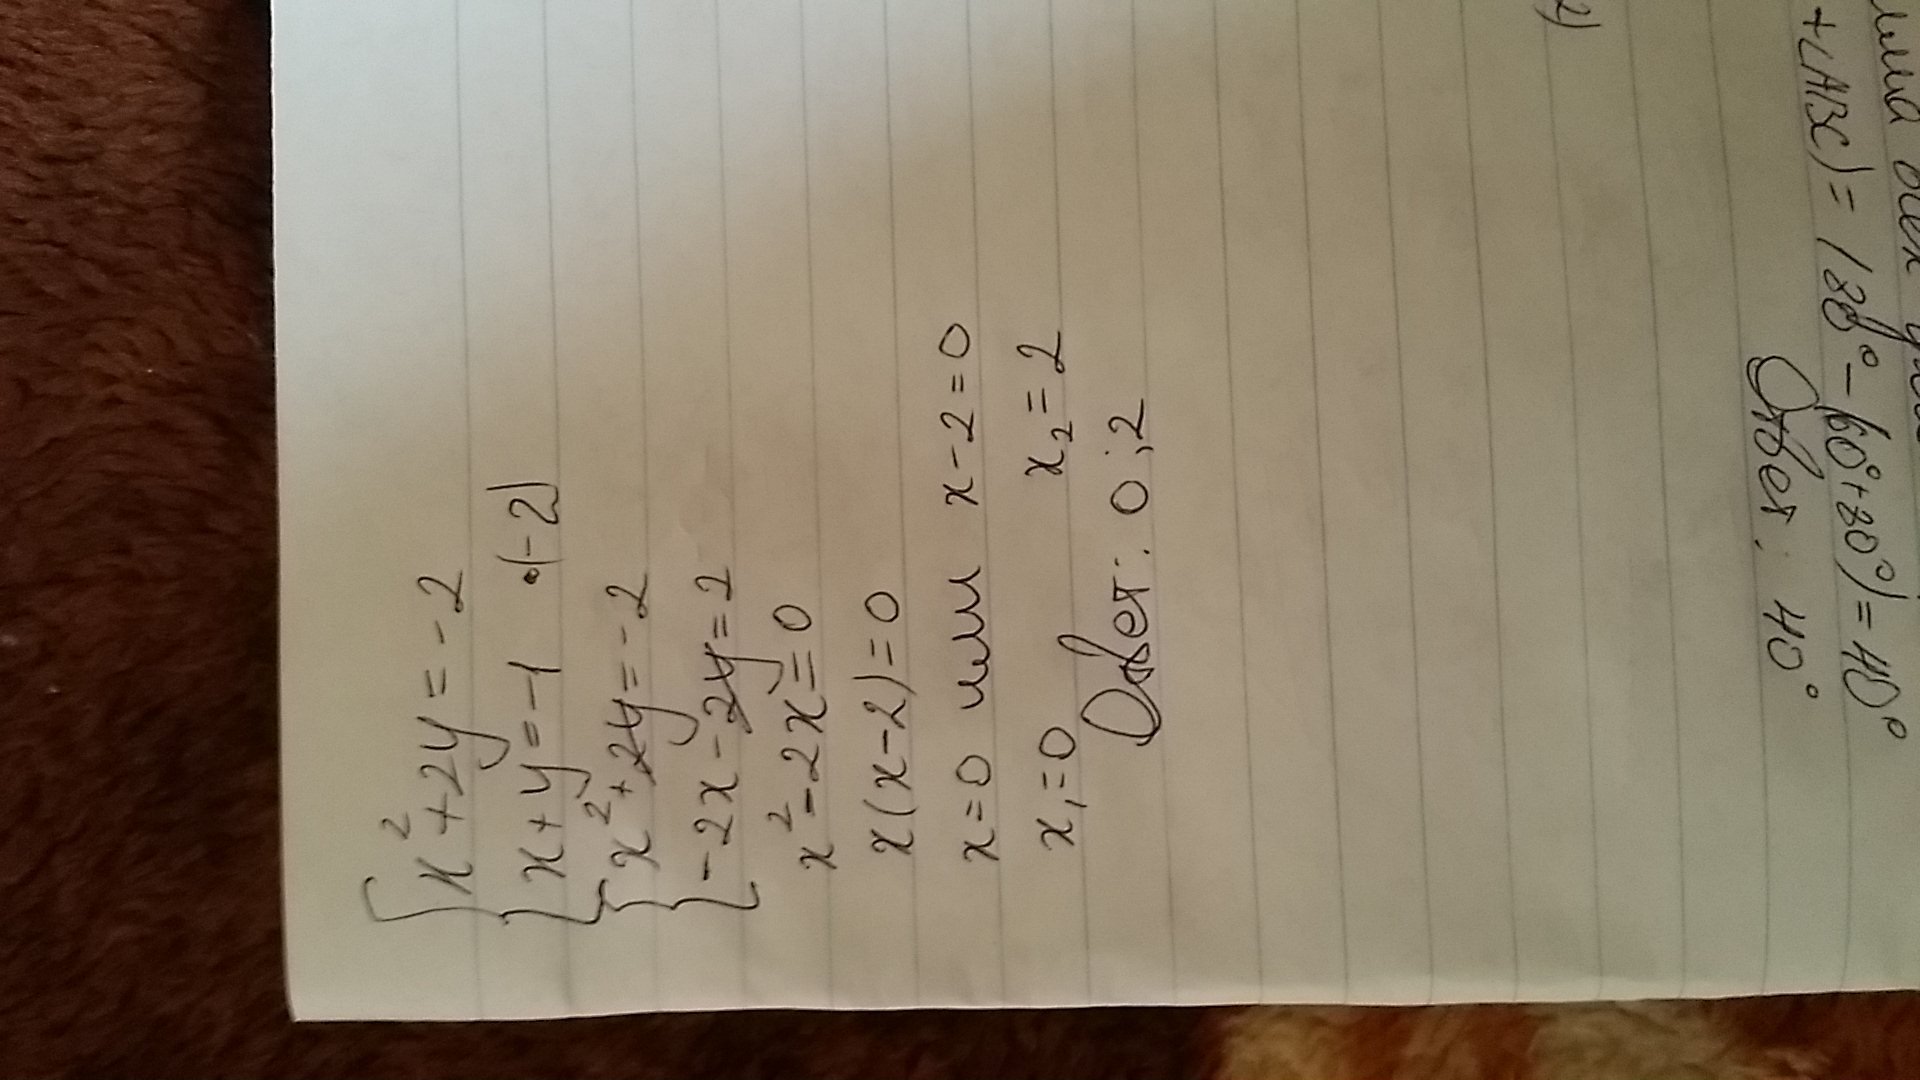 x²+2y=-2
x+y=-1 ·(-2)
x²+2y=-2
-2x-2y=2
x²-2x=0
x(x-2)=0
x=0 или x-2=0
x₁=0 x₂=2
Ответ: 0;2
2)
Ответ: 40°
+∠ABC)= 180°-(60°+80°)=40°